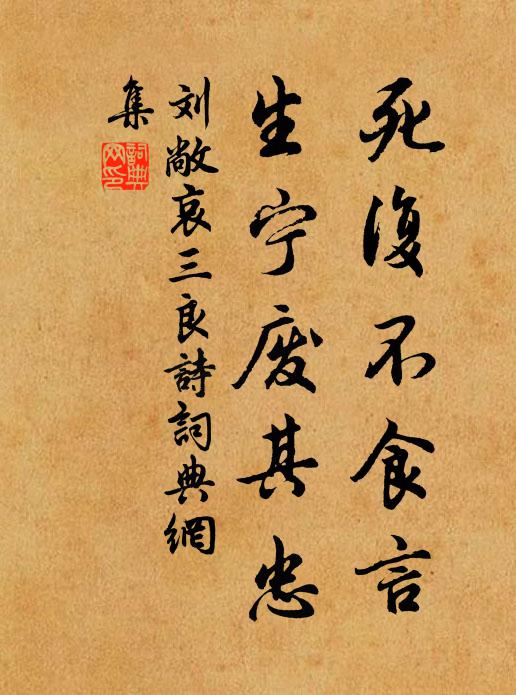 死復不食言
生宁废其忠
刘敞哀三良詩詞典網
集
詞典
网印